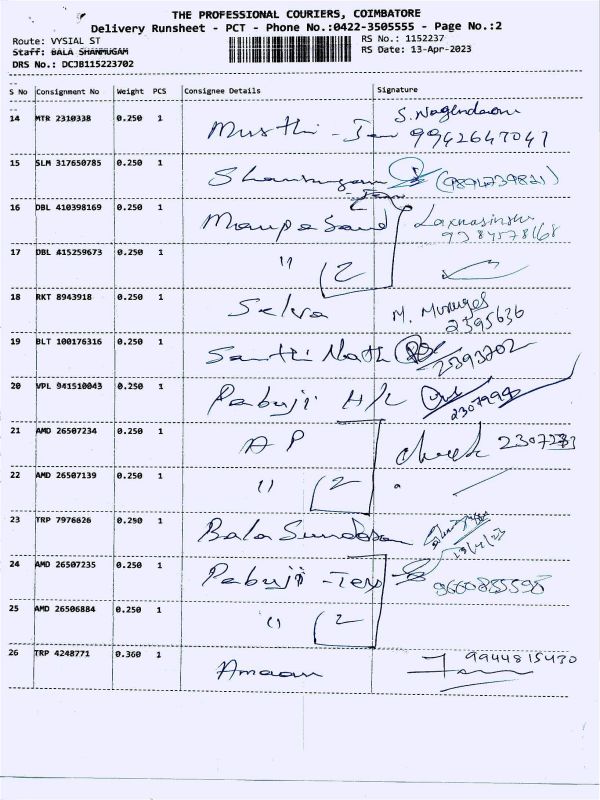 THE PROFESSIONAL COURIERS, COIMBATORE
Delivery Runsheet - PCT - Phone No.:0422-3505555 - Page No.:2
Route: VYSIAL ST RS No.: 1152237
Staff: BALA SHANMUGAM RS Date: 13-Apr-2023
DRS No.: DCJB115223702
S No Consignment No Weight PCS Consignee Details Signature
14 MTR 2310338 0.250 1 S. Nagendran
Musthi - 9942647041
15 SLM 317650785 0.250 1 Shanmugam
16 DBL 410398169 0.250 1
17 DBL 415259673 0.250 1 " 2
18 RKT 8943918 0.250 1 Selva M. Muruges
2395636
19 BLT 100176316 0.250 1 Santhi Nath 2393702
20 VPL 941510043 0.250 1 Pabuji H/L
21 AMD 26507234 0.250 1 A P
22 AMD 26507139 0.250 1 " 2
23 TRP 7976626 0.250 1 Bala Sundaram
13/4/23
24 AMD 26507235 0.250 1 Pabuji - Tex 9660855598
25 AMD 26506884 0.250 1 " 2
26 TRP 4248771 0.360 1 Amaan 9944815430